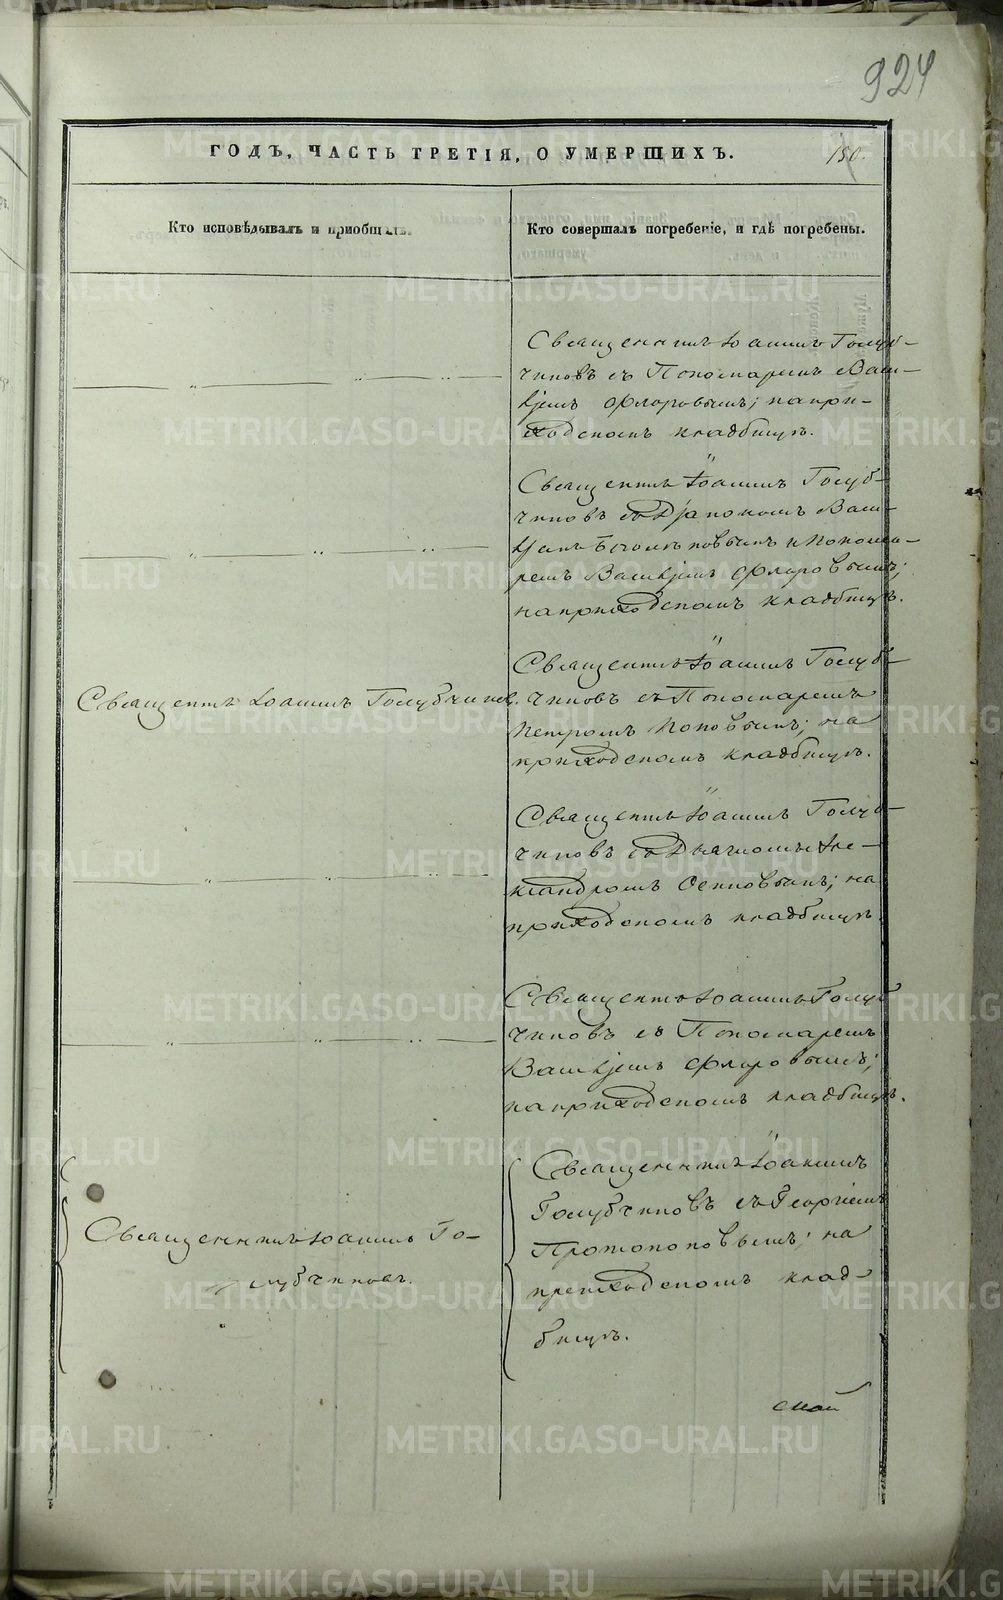 924
ГОДЪ, ЧАСТЬ ТРЕТІЯ, О УМЕРШИХЪ.
150.
Кто исповѣдывалъ и пріобщалъ.
Кто совершалъ погребеніе, и гдѣ погребены.
Священникъ Іоаннъ Голуб-
чиковъ съ Пономаремъ Васи-
ліемъ Флоровымъ; на при-
ходскомъ кладбищѣ.
Священникъ Іоаннъ Голуб-
чиковъ съ Діакономъ
и Понома-
ремъ Василіемъ Флоровымъ;
на приходскомъ кладбищѣ.
Священникъ Іоаннъ Голубчиковъ.
Священникъ Іоаннъ Голуб-
чиковъ съ Пономаремъ
Петромъ Поповымъ; на
приходскомъ кладбищѣ.
Священникъ Іоаннъ Голуб-
чиковъ съ Дьячкомъ Але-
ксандромъ Осиповымъ; на
приходскомъ кладбищѣ.
Священникъ Іоаннъ Голуб
чиковъ съ Пономаремъ
Василіемъ Флоровымъ;
на приходскомъ кладбищѣ.
Священникъ Іоаннъ Го-
лубчиковъ.
Священникъ Іоаннъ
Голубчиковъ съ Георгіемъ
Протопоповымъ; на
приходскомъ клад-
бищѣ.
METRIKI.GASO-URAL.RU